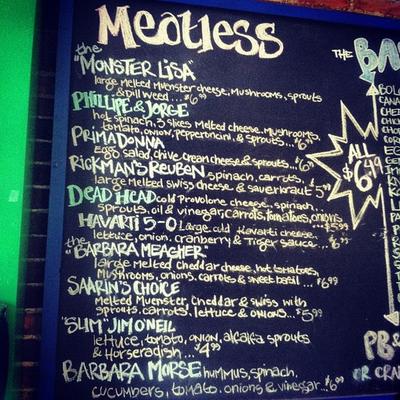 Meatless
the
"MONSTER LISA"
large melted muenster cheese, mushrooms, sprouts
& Dill weed... $6.99
PHILLIPE & JORGE
hot spinach, 3 slices melted cheese, mushrooms,
tomato, onion, pepperoncini, & sprouts...
PRIMADONNA
Egg salad, chive cream cheese & sprouts...
RICKMAN'S REUBEN spinach, carrots,
large melted swiss cheese & sauerkraut 5.99
DEAD HEAD cold Provolone cheese, spinach,
sprouts, oil & vinegar, carrots, tomatoes, onions
$5.99
HAVARTI 5-O Large cold Havarti cheese
lettuce, onion, cranberry & Tiger sauce...
the "BARBARA MEAGHER"
large melted cheddar cheese, hot tomatoes,
mushrooms, onions, carrots & sweet basil... $6.99
SAARIN'S CHOICE
Melted Muenster, Cheddar & Swiss with
sprouts, carrots, lettuce & onions... $5.99
"SLIM" JIM O'NEIL
lettuce, tomato, onion, alfalfa sprouts
& Horseradish... $4.99
BARBARA MORSE hummus, spinach,
cucumbers, tomato, onions & vinegar...
THE BA
ALL
$6.99
BOLO
CANA
CHE
CHIC
CHO
COR
EGG
GE
PB &
OR CRA